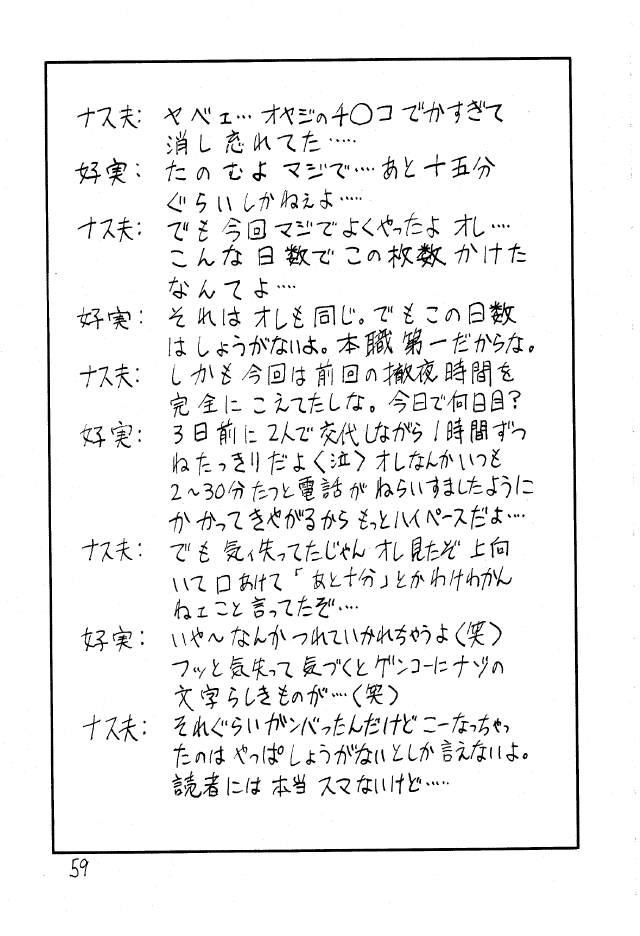 ナス夫: ヤベェ… オヤジのチ○コ でかすぎて
消し忘れてた……
好実: たのむよ マジで…. あと十五分
ぐらいしかねぇよ……
ナス夫: でも 今回マジでよくやったよ オレ….
こんな日数で この枚数 かけた
なんてよ….
好実: それは オレも同じ。でも この日数
はしょうがないよ。本職第一だからな。
ナス夫: しかも今回は前回の撤夜時間を
完全に こえてたしな。今日で何日目?
好実: 3日前に2人で交代しながら1時間ずつ
ねたっきりだよ(泣) オレなんかいつも
2~30分たつと電話がねらいすましたように
かかってきやがるから もっとハイペースだよ….
ナス夫: でも 気ィ失ってたじゃん オレ見たぞ 上向
いて 口あけて 「あと十分」とか わけわかん
ねェこと 言ってたぞ….
好実: いや〜なんか つれていかれちゃうよ(笑)
フッと気失って 気づくとゲンコーにナゾの
文字らしきものが….(笑)
ナス夫: それぐらいガンバったんだけど こーなっちゃっ
たのは やっぱしょうがないとしか言えないよ。
読者には 本当 スマないけど……
59